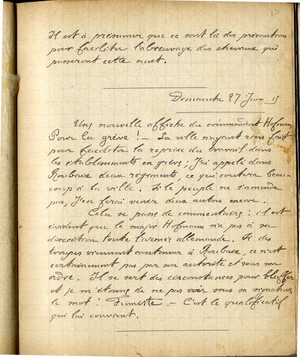 Il est à présumer que ce sont là des précautions
pour faciliter l'abreuvage des chevaux qui
passeront cette nuit.
Dimanche 27 Juin 15
Une nouvelle affiche du commandant Hofmann
Pour la grève ! — La ville n'ayant rien fait
pour faciliter la reprise du travail dans
les établissements en grève, j'ai appelé dans
Roubaix deux régiments, ce qui coûtera beau-
coup à la ville. Si le peuple ne s'amende
pas, j'en ferai venir deux autres encore.
Cela se passe de commentaires : il est
évident que le major Hofmann n'a pas à sa
discrétion toute l'armée allemande. Si des
troupes viennent cantonner à Roubaix, ce n'est
certainement pas par son autorité et sous son
ordre. Il se sert des circonstances pour bluffer
et je m'étonne de ne pas voir sous sa signature
le mot : Fumiste. — C'est le qualificatif
qui lui convient.